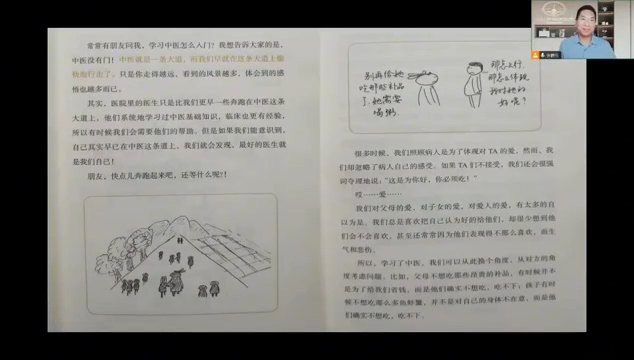 常常有朋友问我，学习中医怎么入门？我想告诉大家的是，
中医没有门！中医就是一条大道，而我们早就在这条大道上愉
快地行走了。只是你走得越远，看到的风景越多，体会到的感
悟也越多而已。
其实，医院里的医生只是比我们更早一些奔跑在中医这条
大道上，他们系统地学习过中医基础知识，临床也更有经验，
所以有时候我们会需要他们的帮助。但是如果我们能意识到，
自己其实早已在中医这条道上，我们就会发现，最好的医生就
是我们自己！
朋友，快点儿奔跑起来吧，还等什么呢？！
别再给她
吃那些补品
了，她需要
喝粥
那怎么行
那怎么体现
我对她的
好呢？
很多时候，我们照顾病人是为了体现对 TA 的爱，然而，我
们却忽略了病人自己的感受。如果 TA 们不接受，我们还会很强
词夺理地说：“这是为你好，你必须吃！”
哎……爱……
我们对父母的爱，对子女的爱，对爱人的爱，有太多的自
以为是。我们总是喜欢把自己认为好的给他们，却很少想到他
们会不会喜欢，甚至还常常因为他们表现得不那么喜欢，而生
气和悲伤。
所以，学习了中医，我们可以从此换个角度，从对方的角
度考虑问题。比如，父母不想吃那些昂贵的补品，有时候并不
是为了给我们省钱，而是他们确实不想吃，吃不下；孩子有时
候不想吃那么多鱼鲜蟹，并不是对自己的身体不在意，而是他
们确实不想吃，吃不下。